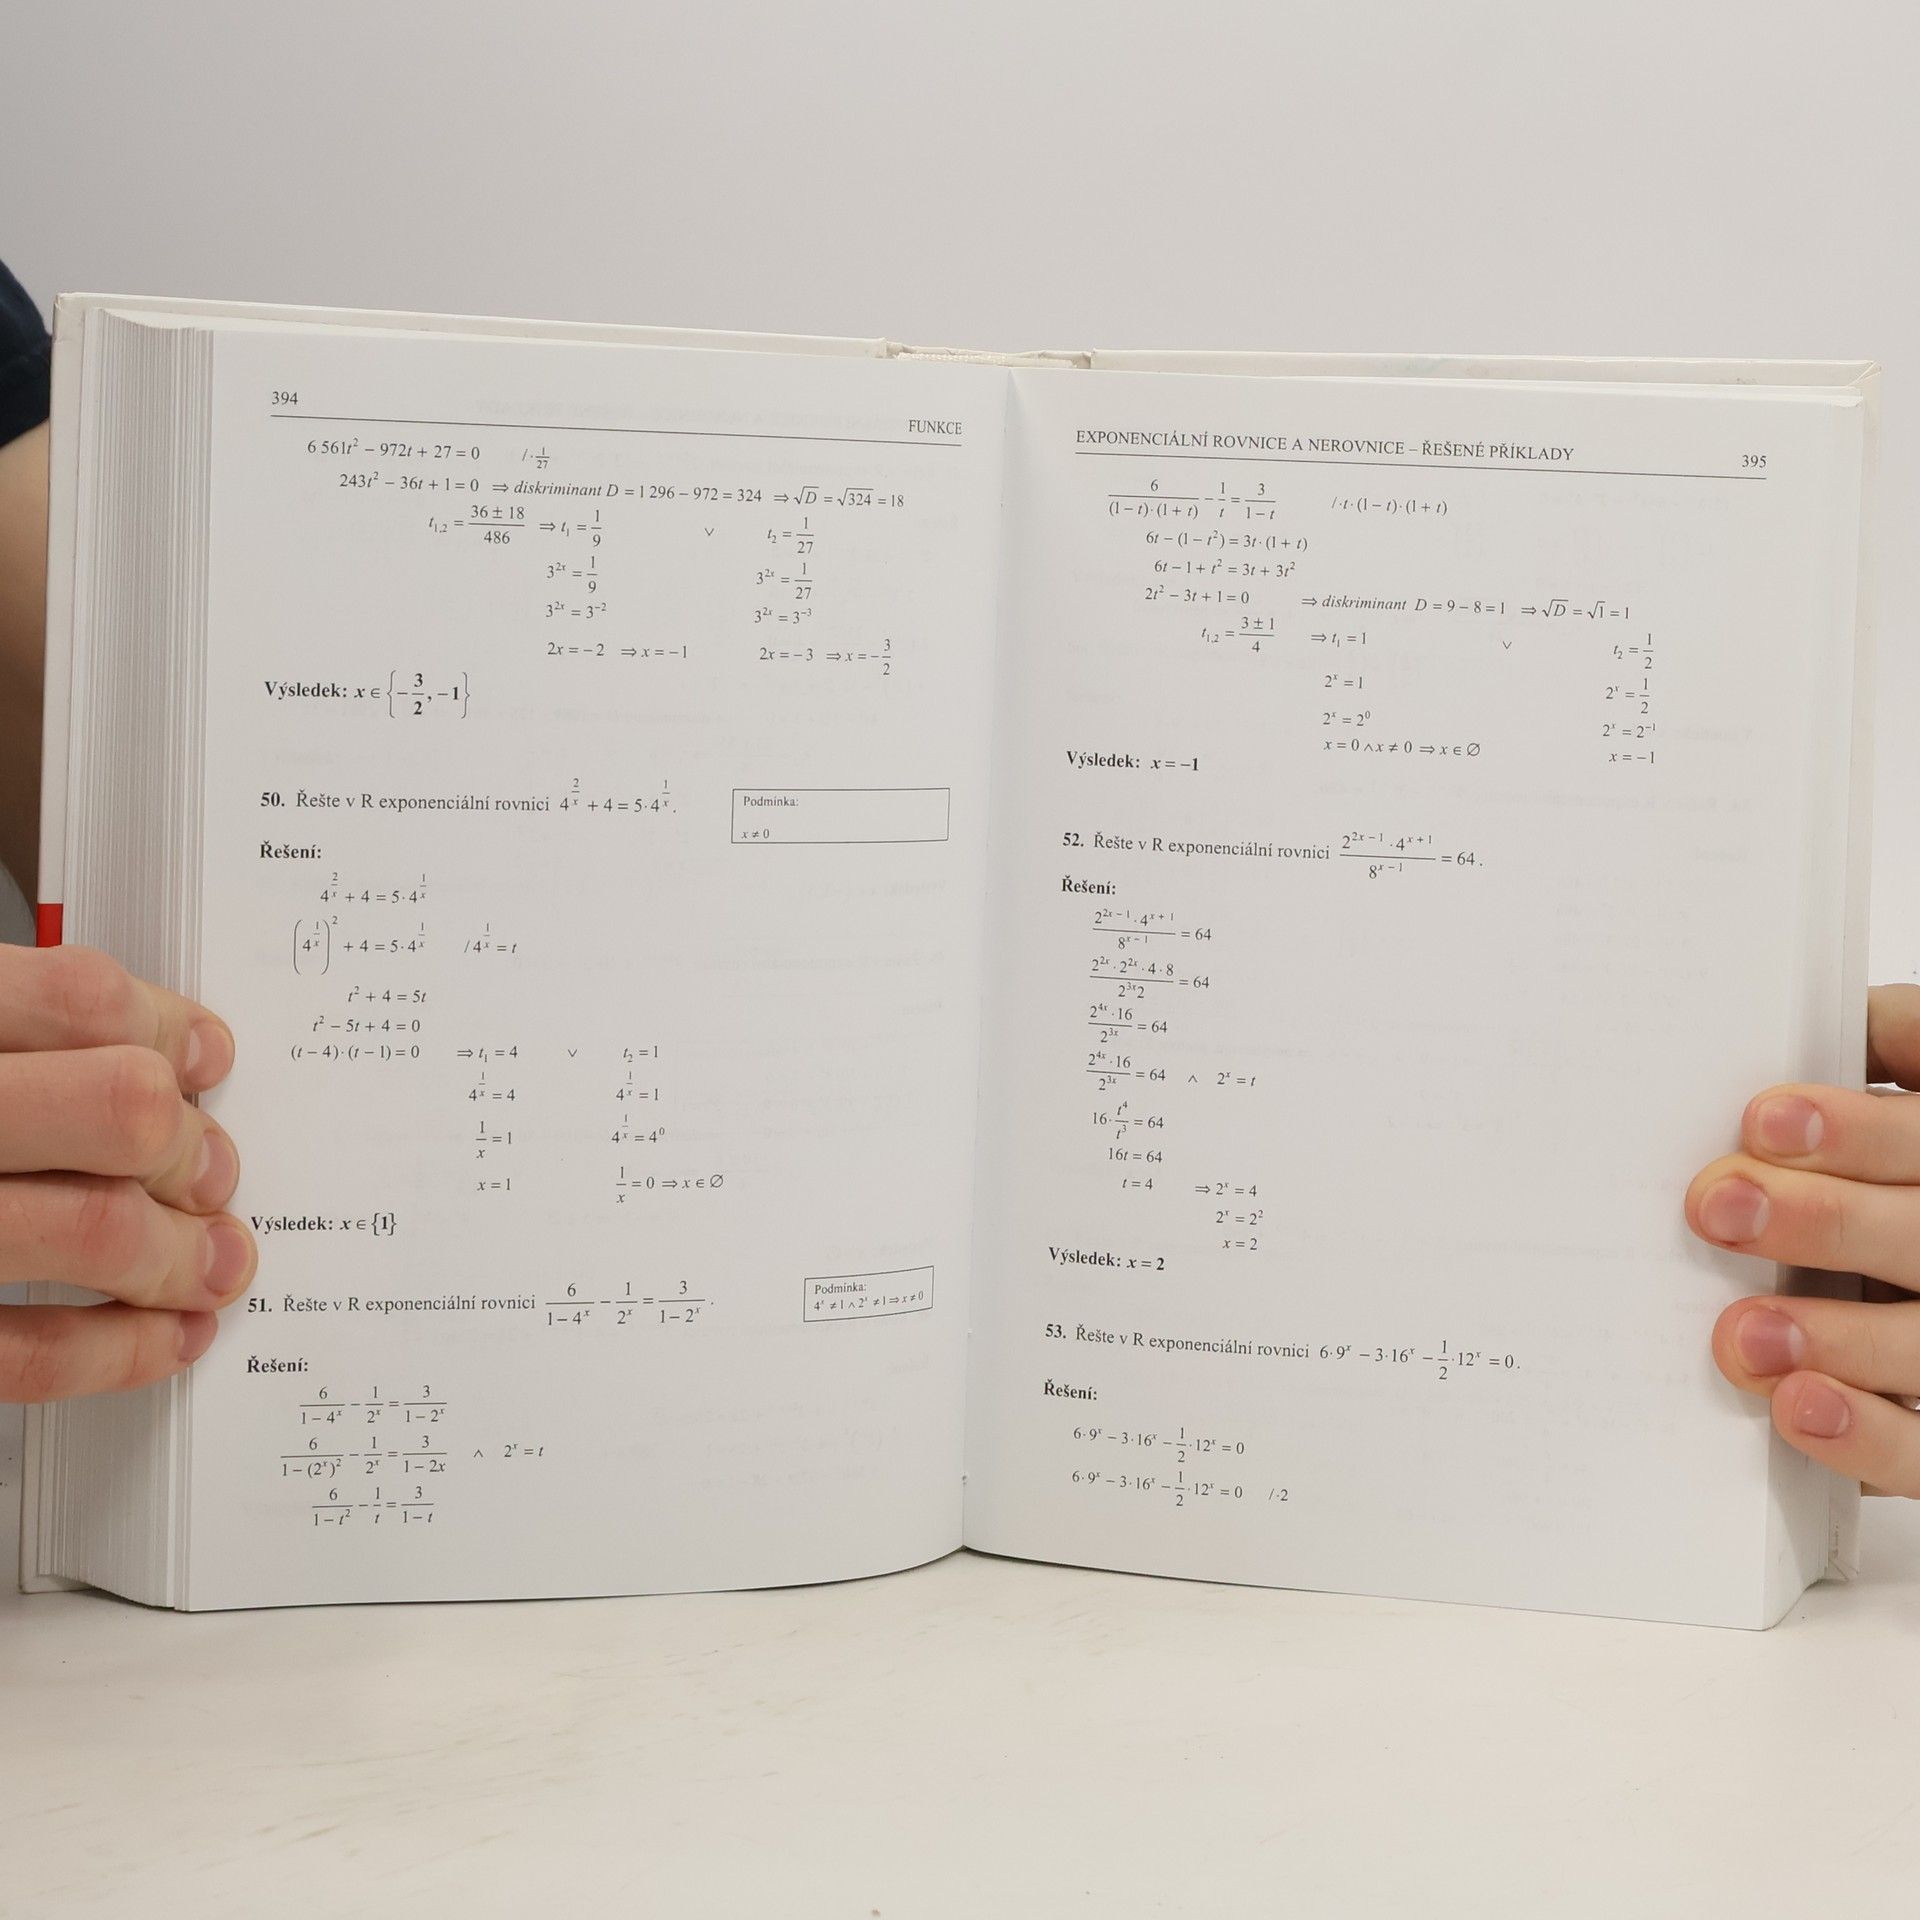 394
FUNKCE
6 561t² − 972t + 27 = 0 /·1/27
243t² − 36t + 1 = 0 ⇒ diskriminant D = 1 296 − 972 = 324 ⇒ √D = √324 = 18
t₁,₂ = (36 ± 18)/486 ⇒ t₁ = 1/9 ∨ t₂ = 1/27
3^(2x) = 1/9 3^(2x) = 1/27
3^(2x) = 3^(−2) 3^(2x) = 3^(−3)
2x = −2 ⇒ x = −1 2x = −3 ⇒ x = −3/2
Výsledek: x ∈ {−3/2, −1}
50. Řešte v R exponenciální rovnici 4^(2/x) + 4 = 5·4^(1/x).
Podmínka:
x ≠ 0
Řešení:
4^(2/x) + 4 = 5·4^(1/x)
(4^(1/x))² + 4 = 5·4^(1/x) /4^(1/x) = t
t² + 4 = 5t
t² − 5t + 4 = 0
(t − 4)·(t − 1) = 0 ⇒ t₁ = 4 ∨ t₂ = 1
4^(1/x) = 4 4^(1/x) = 1
1/x = 1 4^(1/x) = 4⁰
x = 1 1/x = 0 ⇒ x ∈ ∅
Výsledek: x ∈ {1}
51. Řešte v R exponenciální rovnici 6/(1 − 4^x) − 1/2^x = 3/(1 − 2^x).
Podmínka:
4^x ≠ 1 ∧ 2^x ≠ 1 ⇒ x ≠ 0
Řešení:
6/(1 − 4^x) − 1/2^x = 3/(1 − 2^x)
6/(1 − (2^x)²) − 1/2^x = 3/(1 − 2x) ∧ 2^x = t
6/(1 − t²) − 1/t = 3/(1 − t)
EXPONENCIÁLNÍ ROVNICE A NEROVNICE – ŘEŠENÉ PŘÍKLADY
395
6/((1 − t)·(1 + t)) − 1/t = 3/(1 − t) /·t·(1 − t)·(1 + t)
6t − (1 − t²) = 3t·(1 + t)
6t − 1 + t² = 3t + 3t²
2t² − 3t + 1 = 0 ⇒ diskriminant D = 9 − 8 = 1 ⇒ √D = √1 = 1
t₁,₂ = (3 ± 1)/4 ⇒ t₁ = 1 ∨ t₂ = 1/2
2^x = 1 2^x = 1/2
2^x = 2⁰ 2^x = 2^(−1)
x = 0 ∧ x ≠ 0 ⇒ x ∈ ∅ x = −1
Výsledek: x = −1
52. Řešte v R exponenciální rovnici (2^(2x − 1)·4^(x + 1))/8^(x − 1) = 64.
Řešení:
(2^(2x − 1)·4^(x + 1))/8^(x − 1) = 64
(2^(2x)·2^(2x)·4·8)/(2^(3x)2) = 64
(2^(4x)·16)/2^(3x) = 64
(2^(4x)·16)/2^(3x) = 64 ∧ 2^x = t
16·t⁴/t³ = 64
16t = 64
t = 4 ⇒ 2^x = 4
2^x = 2²
x = 2
Výsledek: x = 2
53. Řešte v R exponenciální rovnici 6·9^x − 3·16^x − 1/2·12^x = 0.
Řešení:
6·9^x − 3·16^x − 1/2·12^x = 0
6·9^x − 3·16^x − 1/2·12^x = 0 /·2